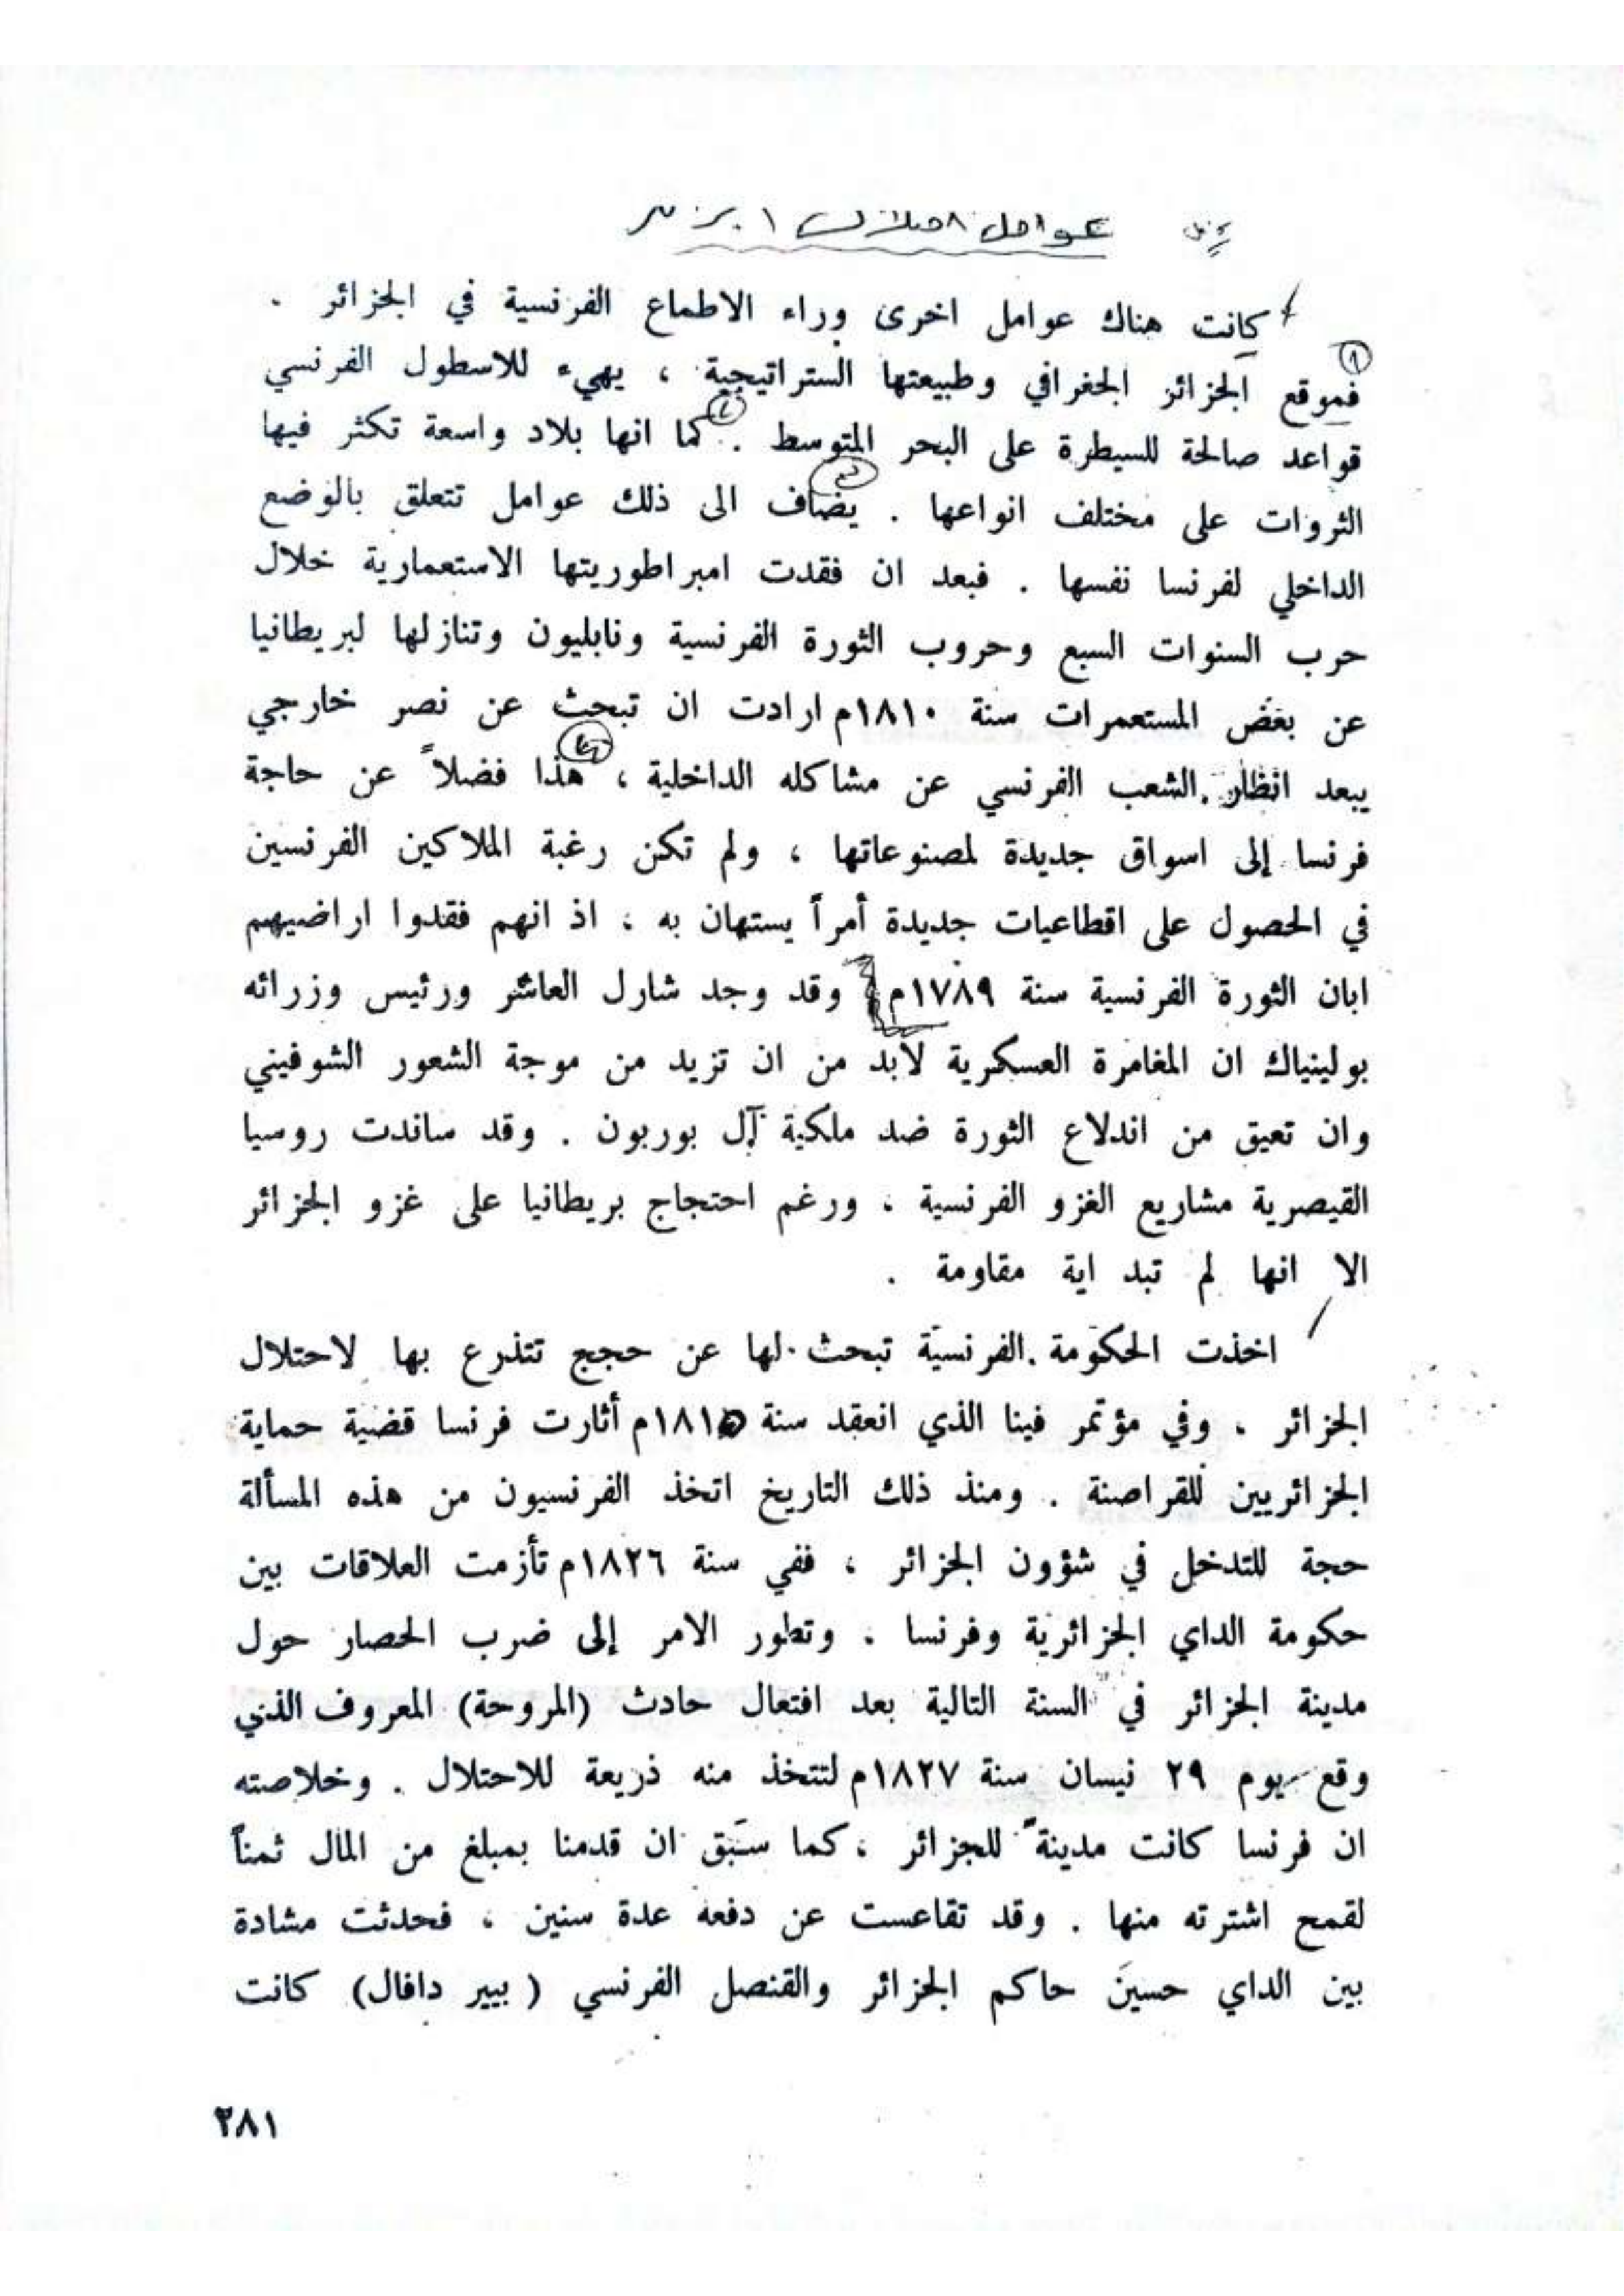 عوامل احتلال الجزائر
كانت هناك عوامل اخرى وراء الاطماع الفرنسية في الجزائر .
١
فموقع الجزائر الجغرافي وطبيعتها الستراتيجية ، يهيء للاسطول الفرنسي
٢
قواعد صالحة للسيطرة على البحر المتوسط . كما انها بلاد واسعة تكثر فيها
٣
الثروات على مختلف انواعها . يضاف الى ذلك عوامل تتعلق بالوضع
الداخلي لفرنسا نفسها . فبعد ان فقدت امبراطوريتها الاستعمارية خلال
حرب السنوات السبع وحروب الثورة الفرنسية ونابليون وتنازلها لبريطانيا
عن بعض المستعمرات سنة ١٨١٠م ارادت ان تبحث عن نصر خارجي
٤
يبعد انظار الشعب الفرنسي عن مشاكله الداخلية ، هذا فضلاً عن حاجة
فرنسا إلى اسواق جديدة لمصنوعاتها ، ولم تكن رغبة الملاكين الفرنسين
في الحصول على اقطاعيات جديدة أمراً يستهان به ، اذ انهم فقدوا اراضيهم
ابان الثورة الفرنسية سنة ١٧٨٩م وقد وجد شارل العاشر ورئيس وزرائه
بولينياك ان المغامرة العسكرية لابد من ان تزيد من موجة الشعور الشوفيني
وان تعيق من اندلاع الثورة ضد ملكية آل بوربون . وقد ساندت روسيا
القيصرية مشاريع الغزو الفرنسية ، ورغم احتجاج بريطانيا على غزو الجزائر
الا انها لم تبد اية مقاومة .
اخذت الحكومة الفرنسية تبحث لها عن حجج تتذرع بها لاحتلال
الجزائر ، وفي مؤتمر فينا الذي انعقد سنة ١٨١٥م أثارت فرنسا قضية حماية
الجزائريين للقراصنة . ومنذ ذلك التاريخ اتخذ الفرنسيون من هذه المسألة
حجة للتدخل في شؤون الجزائر ، ففي سنة ١٨٢٦م تأزمت العلاقات بين
حكومة الداي الجزائرية وفرنسا . وتطور الامر إلى ضرب الحصار حول
مدينة الجزائر في السنة التالية بعد افتعال حادث (المروحة) المعروف الذي
وقع يوم ٢٩ نيسان سنة ١٨٢٧م لتتخذ منه ذريعة للاحتلال . وخلاصته
ان فرنسا كانت مدينة للجزائر ، كما سبق ان قدمنا بمبلغ من المال ثمناً
لقمح اشترته منها . وقد تقاعست عن دفعه عدة سنين ، فحدثت مشادة
بين الداي حسين حاكم الجزائر والقنصل الفرنسي ( بيير دافال) كانت
٢٨١